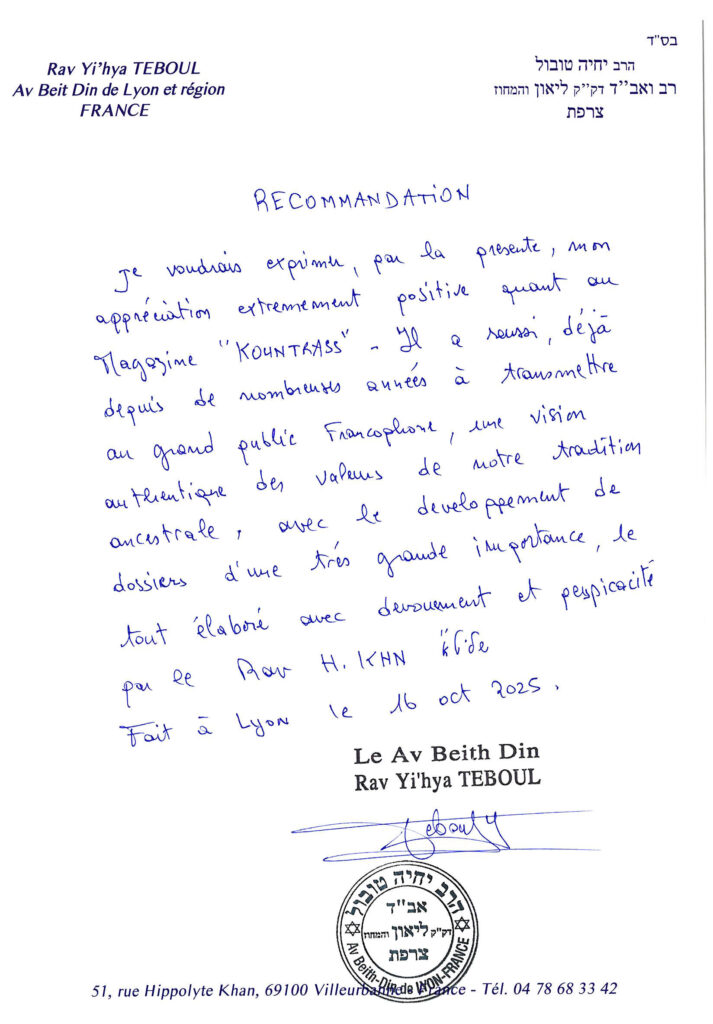 בס"ד
Rav Yi'hya TEBOUL
Av Beit Din de Lyon et région
FRANCE
הרב יחיה טובול
רב ואב"ד דק"ק ליאון והמחוז
צרפת
RECOMMANDATION
Je voudrais exprimer, par la présente, mon
appréciation extremement positive quant au
Magazine "KOUNTRASS" - Il a reussi, déjà
depuis de nombreuses années à transmettre
au grand public Francophone, une vision
authentique des valeurs de notre tradition
ancestrale, avec le developpement de
dossiers d'une très grande importance, le
tout élaboré avec devouement et perspicacité
par le Rav H. KHN
Fait à Lyon le 16 oct 2025.
Le Av Beith Din
Rav Yi'hya TEBOUL
Teboul Y
הרב יחיה טובול
אב"ד
דק"ק ליאון והמחוז
צרפת
Av Beith-Din de LYON-FRANCE
51, rue Hippolyte Khan, 69100 Villeurbanne - France - Tél. 04 78 68 33 42